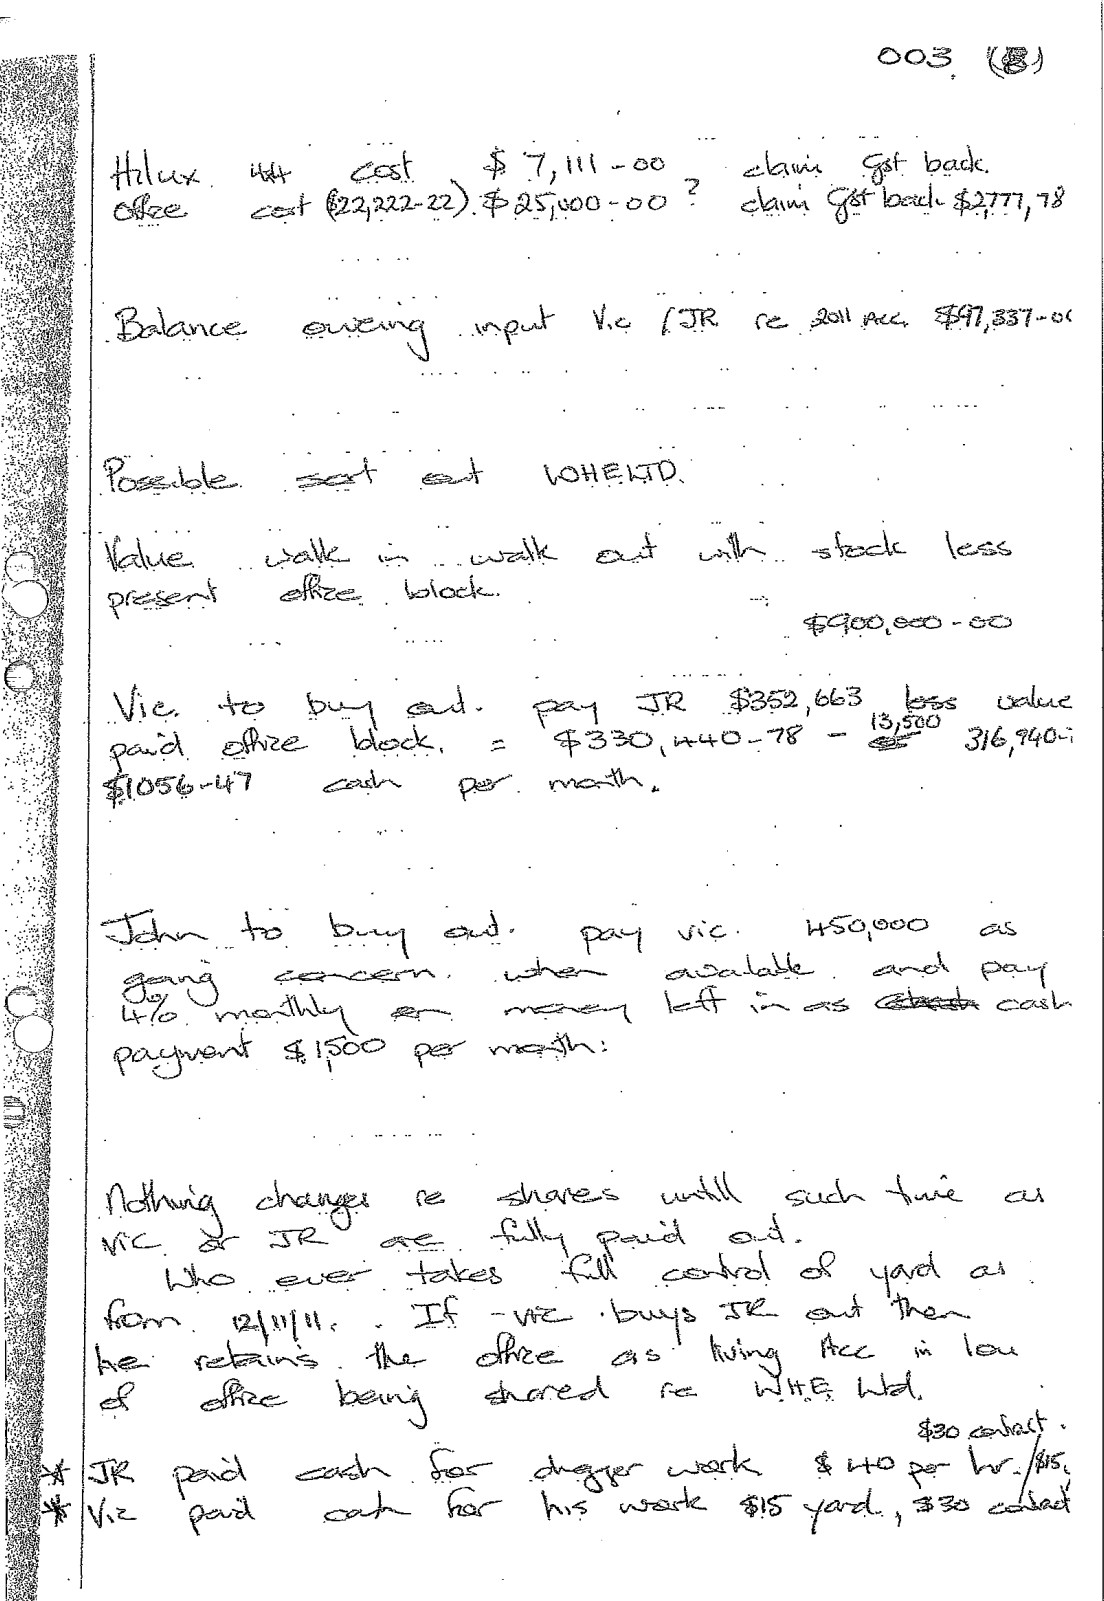 003 (B)
Hilux 4x4 cost $7,111-00 claim Gst back.
office cost ($22,222-22). $25,000-00 ? claim Gst back $2777,78
Balance oweing input Vic / JR re 2011 Acc. $97,337-00
Possible sort out WHE LTD.
Value walk in walk out with stock less
present office block.
$900,000-00
Vic. to buy out. pay JR $352,663 less value
paid office block. = $330,440-78 - 13,500 316,940-
$1056-47 cash per month.
John to buy out. pay vic. 450,000 as
going concern. when available and pay
4% monthly on money left in as cash
payment $1,500 per month:
Nothing changes re shares untill such time as
Vic or JR are fully paid out.
Who ever takes full control of yard as
from 12/11/11. If -vic buys JR out then
he retains the office as living Acc in lou
of office being shared re W.H.E. Ltd.
$30 contract.
* JR paid cash for digger work $40 per hr. /$15,
* Vic paid cash for his work $15 yard, $30 contact